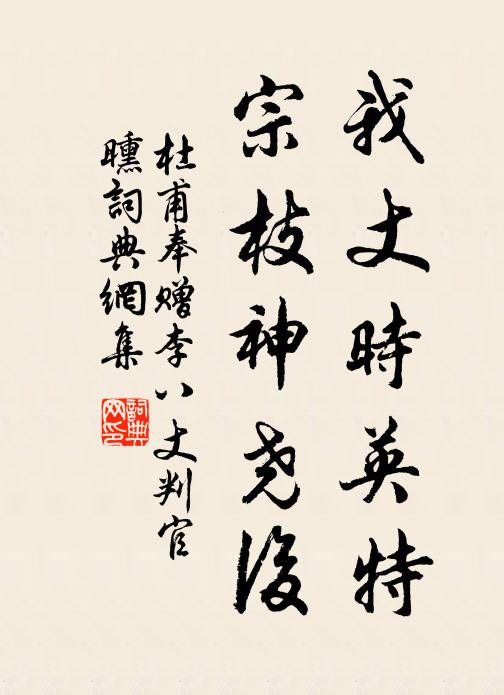 我丈時英特
宗枝神尧後
杜甫奉贈李八丈判官
曛詞典網集
詞典
网印